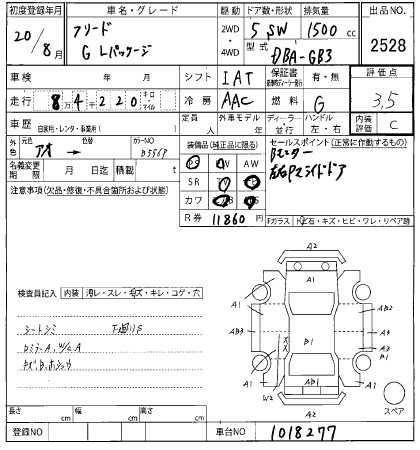 初度登録年月 車名・グレード 駆動 ドア数・形状 排気量 出品NO.
20/8月 フリード 2WD・4WD 5 SW 1500cc 2528
G Lパッケージ 型式 DBA-GB3
車検 年 月 シフト IAT 保証書 有・無 評価点
走行 8万4千220 キロ・マイル 冷房 AAC 燃料 G 3.5
車歴 自家用・レンタ・事業用( ) 定員 人 外車モデル 年 ディーラー 並行 ハンドル 左・右 内装評価 C
外色 元色 アオ → 色替 カラーNO B556P
装備品(純正品に限る) セールスポイント(正常に作動するもの)
PS PW AW Bモニター
名義変更期限 月 日迄 積載 t SR 左右Pスライドドア
注意事項(欠品・修復・不具合箇所および状態) カワ
R券 11860円 Fガラス トビ石・キズ・ヒビ・ワレ・リペア跡
A2
A1
A1 A1
検査員記入 内装 汚レ・スレ・キズ・キレ・コゲ・穴
AB2
シートシミ 下廻りS
AB3 A3
B1 A3
A1 A1
AB1
W2
A2
スペア
長さ cm 幅 cm 高さ cm
登録NO 車台NO 1018277